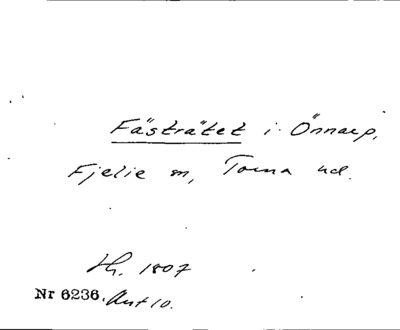 Fästrätet i Önnarp,
Fjelie sn, Torna hd.
Hh. 1807
Nr 6236. Ant 10.